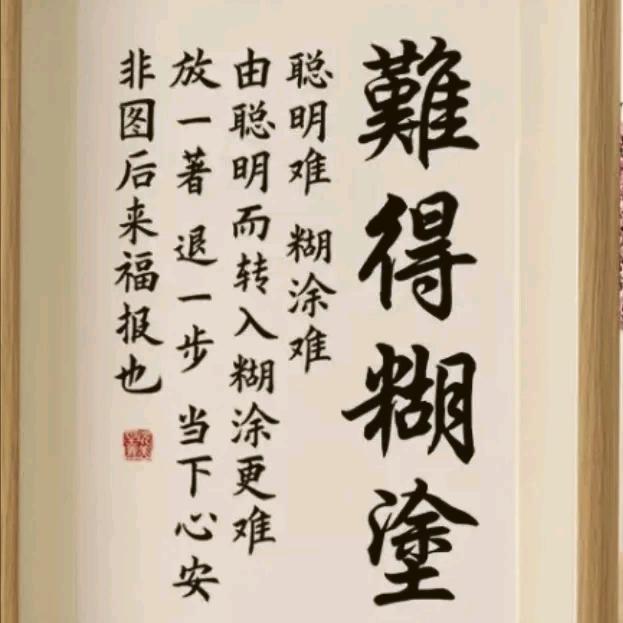 難得糊塗
聪明难 糊涂难
由聪明而转入糊涂更难
放一著 退一步 当下心安
非图后来福报也